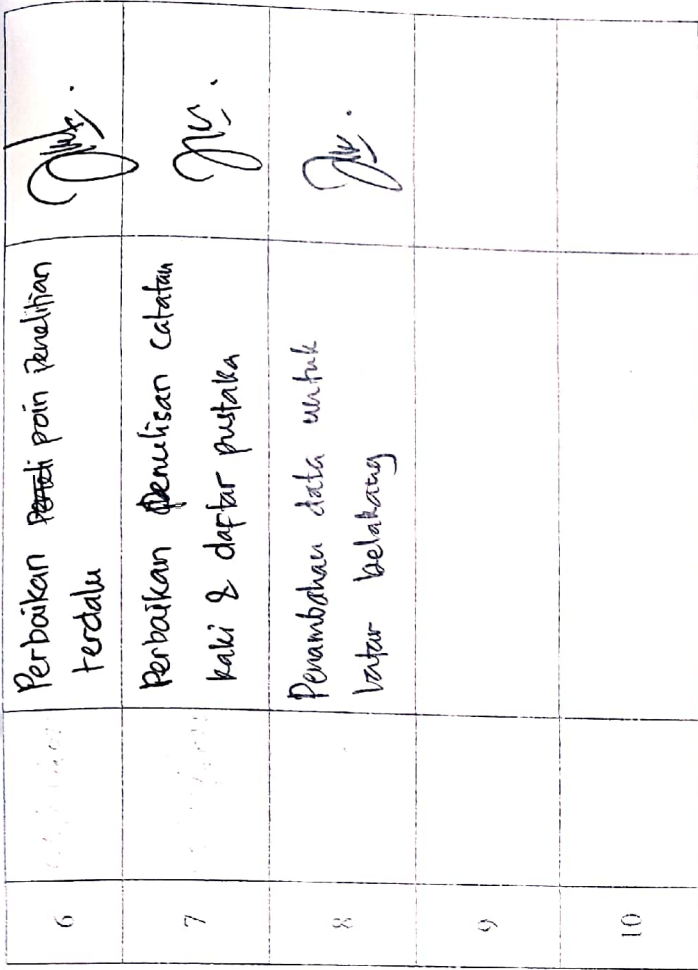 6
Perbaikan poin Penelitian
terdalu
7
Perbaikan Penulisan catatan
kaki & daftar pustaka
8
Penambahan data untuk
latar belakang
9
10